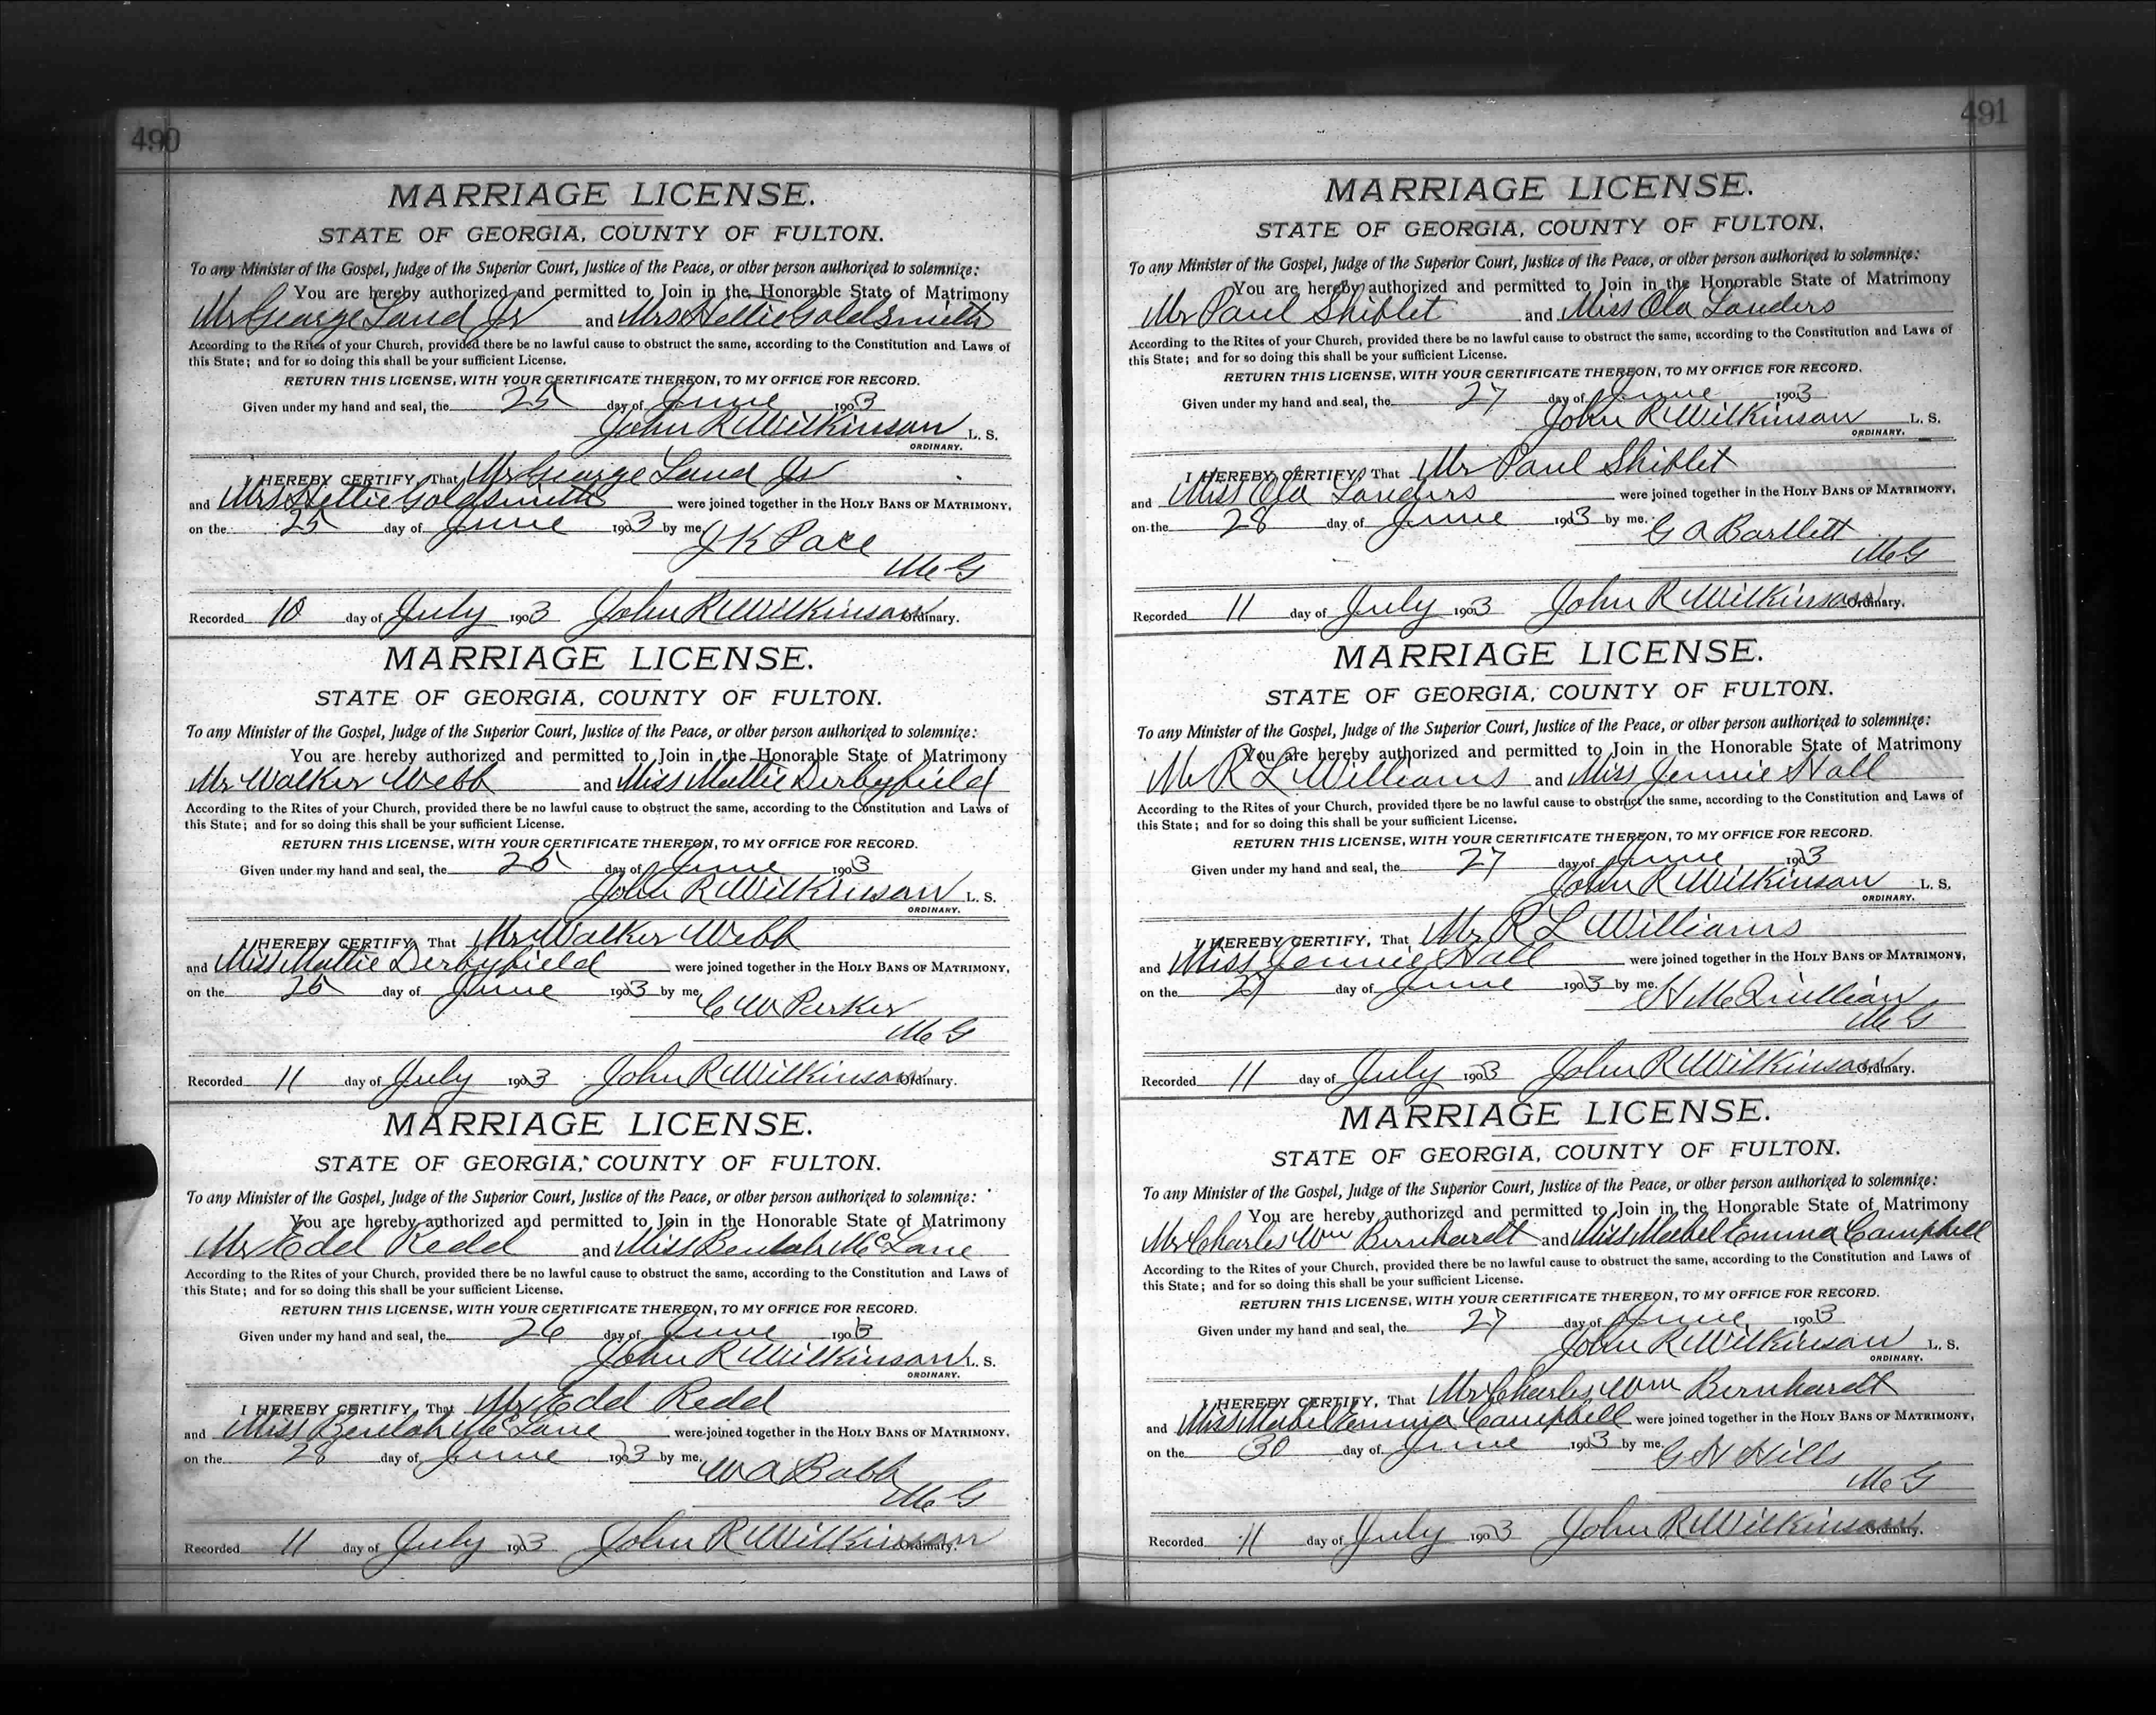 490
MARRIAGE LICENSE.
STATE OF GEORGIA, COUNTY OF FULTON.
To any Minister of the Gospel, Judge of the Superior Court, Justice of the Peace, or other person authorized to solemnize:
You are hereby authorized and permitted to Join in the Honorable State of Matrimony
Mr George Land Jr and Mrs Hettie Goldsmith
According to the Rites of your Church, provided there be no lawful cause to obstruct the same, according to the Constitution and Laws of
this State; and for so doing this shall be your sufficient License.
RETURN THIS LICENSE, WITH YOUR CERTIFICATE THEREON, TO MY OFFICE FOR RECORD.
Given under my hand and seal, the 25 day of June 1903
John R Wilkinson L. S.
ORDINARY.
I HEREBY CERTIFY, That Mr George Land Jr
and Mrs Hettie Goldsmith were joined together in the HOLY BANS OF MATRIMONY,
on the 25 day of June 1903 by me,
J K Pace
M G
Recorded 10 day of July 1903 John R Wilkinson Ordinary.
MARRIAGE LICENSE.
STATE OF GEORGIA, COUNTY OF FULTON.
To any Minister of the Gospel, Judge of the Superior Court, Justice of the Peace, or other person authorized to solemnize:
You are hereby authorized and permitted to Join in the Honorable State of Matrimony
Mr Walker Webb and Miss Mattie Derbyfield
According to the Rites of your Church, provided there be no lawful cause to obstruct the same, according to the Constitution and Laws of
this State; and for so doing this shall be your sufficient License.
RETURN THIS LICENSE, WITH YOUR CERTIFICATE THEREON, TO MY OFFICE FOR RECORD.
Given under my hand and seal, the 25 day of June 1903
John R Wilkinson L. S.
ORDINARY.
I HEREBY CERTIFY, That Mr Walker Webb
and Miss Mattie Derbyfield were joined together in the HOLY BANS OF MATRIMONY,
on the 25 day of June 1903 by me,
C W Parker
M G
Recorded 11 day of July 1903 John R Wilkinson Ordinary.
MARRIAGE LICENSE.
STATE OF GEORGIA, COUNTY OF FULTON.
To any Minister of the Gospel, Judge of the Superior Court, Justice of the Peace, or other person authorized to solemnize:
You are hereby authorized and permitted to Join in the Honorable State of Matrimony
Mr Edd Redd and Miss Beulah McLane
According to the Rites of your Church, provided there be no lawful cause to obstruct the same, according to the Constitution and Laws of
this State; and for so doing this shall be your sufficient License.
RETURN THIS LICENSE, WITH YOUR CERTIFICATE THEREON, TO MY OFFICE FOR RECORD.
Given under my hand and seal, the 26 day of June 1903
John R Wilkinson L. S.
ORDINARY.
I HEREBY CERTIFY, That Mr Edd Redd
and Miss Beulah McLane were joined together in the HOLY BANS OF MATRIMONY,
on the 28 day of June 1903 by me,
W A Babb
M G
Recorded 11 day of July 1903 John R Wilkinson Ordinary.
491
MARRIAGE LICENSE.
STATE OF GEORGIA, COUNTY OF FULTON.
To any Minister of the Gospel, Judge of the Superior Court, Justice of the Peace, or other person authorized to solemnize:
You are hereby authorized and permitted to Join in the Honorable State of Matrimony
Mr Paul Shiblet and Miss Ola Landers
According to the Rites of your Church, provided there be no lawful cause to obstruct the same, according to the Constitution and Laws of
this State; and for so doing this shall be your sufficient License.
RETURN THIS LICENSE, WITH YOUR CERTIFICATE THEREON, TO MY OFFICE FOR RECORD.
Given under my hand and seal, the 27 day of June 1903
John R Wilkinson L. S.
ORDINARY.
I HEREBY CERTIFY, That Mr Paul Shiblet
and Miss Ola Landers were joined together in the HOLY BANS OF MATRIMONY,
on the 28 day of June 1903 by me.
G A Bartlett
M G
Recorded 11 day of July 1903 John R Wilkinson Ordinary.
MARRIAGE LICENSE.
STATE OF GEORGIA, COUNTY OF FULTON.
To any Minister of the Gospel, Judge of the Superior Court, Justice of the Peace, or other person authorized to solemnize:
You are hereby authorized and permitted to Join in the Honorable State of Matrimony
Mr R L Williams and Miss Jennie Hall
According to the Rites of your Church, provided there be no lawful cause to obstruct the same, according to the Constitution and Laws of
this State; and for so doing this shall be your sufficient License.
RETURN THIS LICENSE, WITH YOUR CERTIFICATE THEREON, TO MY OFFICE FOR RECORD.
Given under my hand and seal, the 27 day of June 1903
John R Wilkinson L. S.
ORDINARY.
I HEREBY CERTIFY, That Mr R L Williams
and Miss Jennie Hall were joined together in the HOLY BANS OF MATRIMONY,
on the 27 day of June 1903 by me.
H McQuillian
M G
Recorded 11 day of July 1903 John R Wilkinson Ordinary.
MARRIAGE LICENSE.
STATE OF GEORGIA, COUNTY OF FULTON.
To any Minister of the Gospel, Judge of the Superior Court, Justice of the Peace, or other person authorized to solemnize:
You are hereby authorized and permitted to Join in the Honorable State of Matrimony
Mr Charles Wm Bernhardt and Miss Mabel Emma Campbell
According to the Rites of your Church, provided there be no lawful cause to obstruct the same, according to the Constitution and Laws of
this State; and for so doing this shall be your sufficient License.
RETURN THIS LICENSE, WITH YOUR CERTIFICATE THEREON, TO MY OFFICE FOR RECORD.
Given under my hand and seal, the 27 day of June 1903
John R Wilkinson L. S.
ORDINARY.
I HEREBY CERTIFY, That Mr Charles Wm Bernhardt
and Miss Mabel Emma Campbell were joined together in the HOLY BANS OF MATRIMONY,
on the 30 day of June 1903 by me.
G H Hills
M G
Recorded 11 day of July 1903 John R Wilkinson Ordinary.